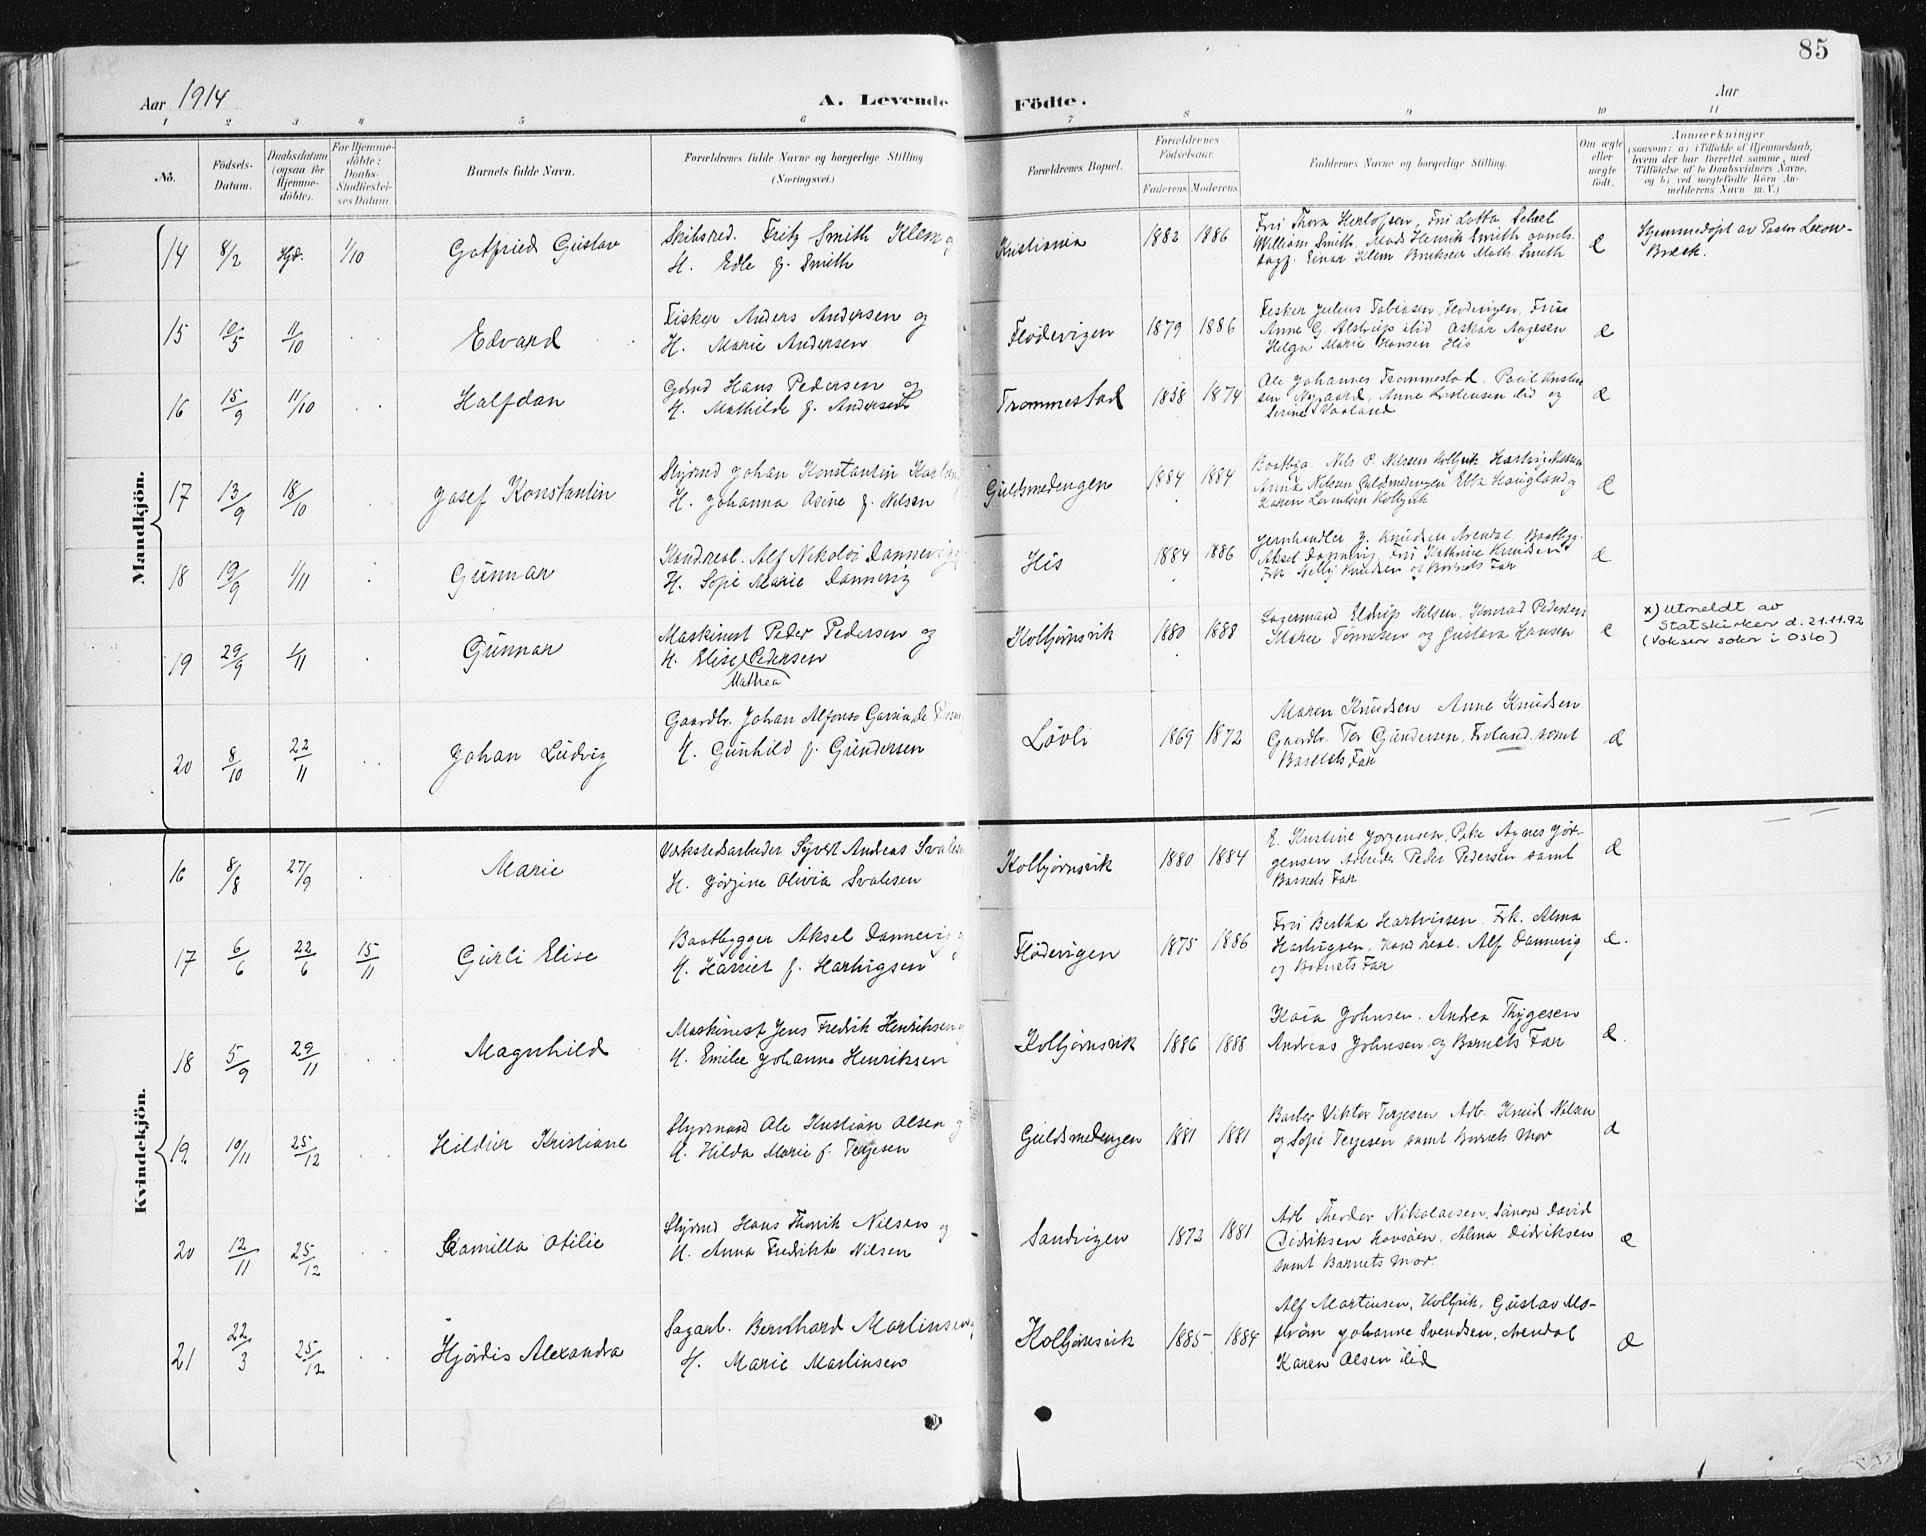 85
Aar 1914
A. Levende Födte.
Aar
1 2 3 4 5 6 7 8 9 10 11
No.
Födsels-Datum.
Daabsdatum (ogsaa for Hjemme-döbte).
For Hjemme-döbte: Daabs-Stadfæstel-ses Datum
Barnets fulde Navn.
Forældrenes fulde Navne og borgerlige Stilling (Næringsvei.)
Forældrenes Bopæl.
Forældrenes Födselsaar.
Faderens Moderens
Faddernes Navne og borgerlige Stilling.
Om ægte eller uægte födt.
Anmærkninger
(saasom: a) i Tilfælde af Hjemmedaab,
hvem der har forrettet samme, med
Tilföielse af to Daabsvidners Navne,
og b) ved uægtefödte Börn An-
melderens Navn m. V.)
Mandkjön.
14 8/2 Hjd. 1/10 Gotfried Gustav
Skibsred. Fritz Smith Klem og
H. Edle f. Smith
Kristiania 1882 1886
Fru Thora Herlofsen, Fru Lotta Scheel
William Smith, Mads Henrik Smith samt
Einar Klem Smith
Æ
Hjemmedöpt av Pastor
15 10/5 11/10 Edvard
Fisker Anders Andersen og
H. Marie Andersen
Flødevigen 1879 1886
Fisker Julius Tobiasen, Flødevigen, Frue
Anne G. Alstrup ibid Oskar Aagesen
Helga Marie Hansen His
Æ
16 15/9 11/10 Halfdan
Gdbrd Hans Pedersen og
H. Mathilde f. Andersen
Trommestad 1858 1874
Ole Johannes Trommestad, Paul Kristen
sen Nygaard, Anne Kristensen ibid og
Serine Vaaland
Æ
17 13/9 18/10 Josef Konstantin
Styrmd Johan Konstantin
H. Johanna Osine f. Nilsen
Guldsmedengen 1884 1884
Baatbyg. Nils P. Nilsen Kolbjvik Hartvig Nilsen
Anna Nilsen Guldsmedengen Haugland og
Karen Kolbjvik
Æ
18 19/9 1/11 Gunnar
Kand.real. Alf Nikolai Dannevig
H. Sofie Marie Dannevig
His 1884 1886
Jernhandler J. Knudsen Arendal. Baatbyg.
Aksel Dannevig, Fru Kathrine Knudsen
Frk. Nelly Knudsen og Barnets Far
Æ
19 29/9 1/11 Gunnar
Maskinist Peder Pedersen og
H. Elise Pedersen
Mathea
Kolbjørnsvik 1880 1888
Lagermand Eldrup Nilsen, Konrad Pedersen
Marie Tønnesen og Gustava Hansen
Æ
x) Utmeldt av
Statskirken d. 21.11.92
(Voksen sokn i Oslo)
20 8/10 22/11 Johan Ludvig
Gaardbr. Johan Alfonso Garcia de
H. Gunhild f. Gundersen
Løvli 1869 1872
Maren Knudsen Anne Knudsen
Gaardbr. Tor Gundersen, Froland samt
Barnets Far
Æ
Kvindekjön.
16 8/8 27/9 Marie
Verkstedsarbeider Syvert Andreas Svalesen
H. Jørgine Olivia Svalesen
Kolbjørnsvik 1880 1884
E. Kristine Jørgensen, Pike Agnes Jør-
gensen Arbeider Peder Pedersen samt
Barnets Far
Æ
17 6/6 22/6 15/11 Gurli Elise
Baatbygger Aksel Dannevig og
H. Harriet f. Hartvigsen
Flødevigen 1875 1886
Fru Bertha Hartvigsen. Frk. Alma
Hartvigsen, Kand real. Alf Dannevig
og Barnets Far
Æ.
18 5/9 29/11 Magnhild
Maskinist Jens Fredrik Henriksen og
H. Emilie Johanne Henriksen
Kolbjørnsvik 1886 1888
Kaia Johnsen. Andrea Thygesen
Andreas Johnsen og Barnets Far
Æ.
19. 10/11 25/12 Hildur Kristiane
Styrmand Ole Kristian Olsen og
H. Hilda Marie f. Terjesen
Guldsmedengen 1881 1881
Barber Viktor Terjesen Arb. Knud Nilsen
og Sofie Terjesen samt Barnets Mor
Æ
20 12/11 25/12 Camilla Otilie
Styrmd Hans Nilsen og
H. Anna Fredrikke Nilsen
Sandvigen 1872 1881
Arb. Theodor Nikolaisen, Sømand David
Didriksen Havsöen, Alma Didriksen
samt Barnets Mor.
Æ
21 22/3 25/12 Hjördis Alexandra
Sagarb. Bernhard Martinsen og
H. Marie Martinsen
Kolbjørnsvik 1885 1884
Alf Martinsen, Kolbjvik, Gustav Mo-
strøm Johanne Svendsen, Arendal
Karen Olsen ibid
Æ